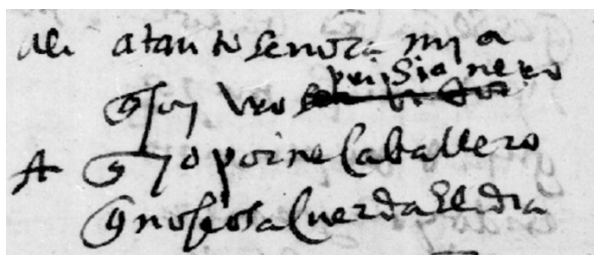 ali atanto senora mya
prisionero
q soy vro
A q yo por ne caballero
q no se os acuerda el dia